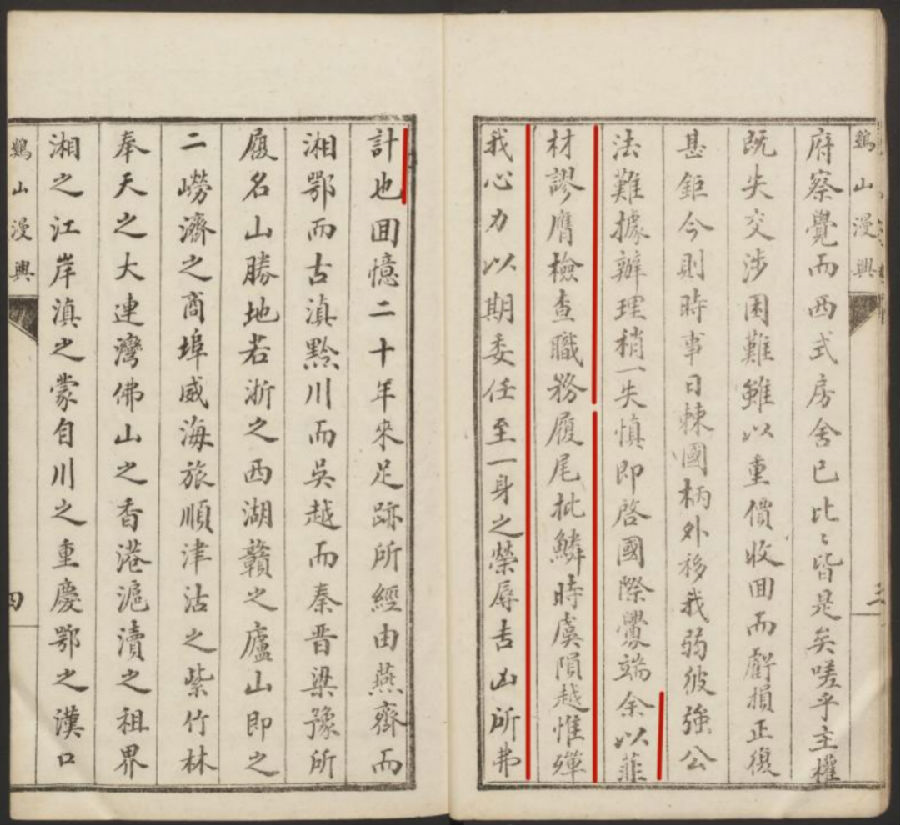 鶴山漫興
三
府察覺而西式房舍已比〻皆是矣嗟乎主權
既失交涉困難雖以重價收回而虧損正復
甚鉅今則時事日棘國柄外移我弱彼強公
法難據辦理稍一失慎即啓國際釁端余以菲
材謬膺檢查職務履尾批鱗時虞隕越惟殫
我心力以期委任至一身之榮辱吉凶所弗
計也囬憶二十年來足跡所經由燕齊而
湘鄂而古滇黔川而吳越而秦晋梁豫所
履名山勝地若浙之西湖贛之廬山即之
二嶗濟之商埠威海旅順津沽之紫竹林
奉天之大連灣佛山之香港滬瀆之祖界
湘之江岸滇之蒙自川之重慶鄂之漢口
鶴山漫興
四